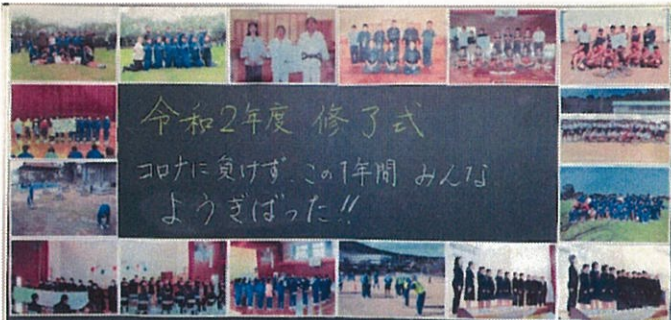 令和2年度 修了式
コロナに負けず、この1年間 みんな
ようぎばった!!